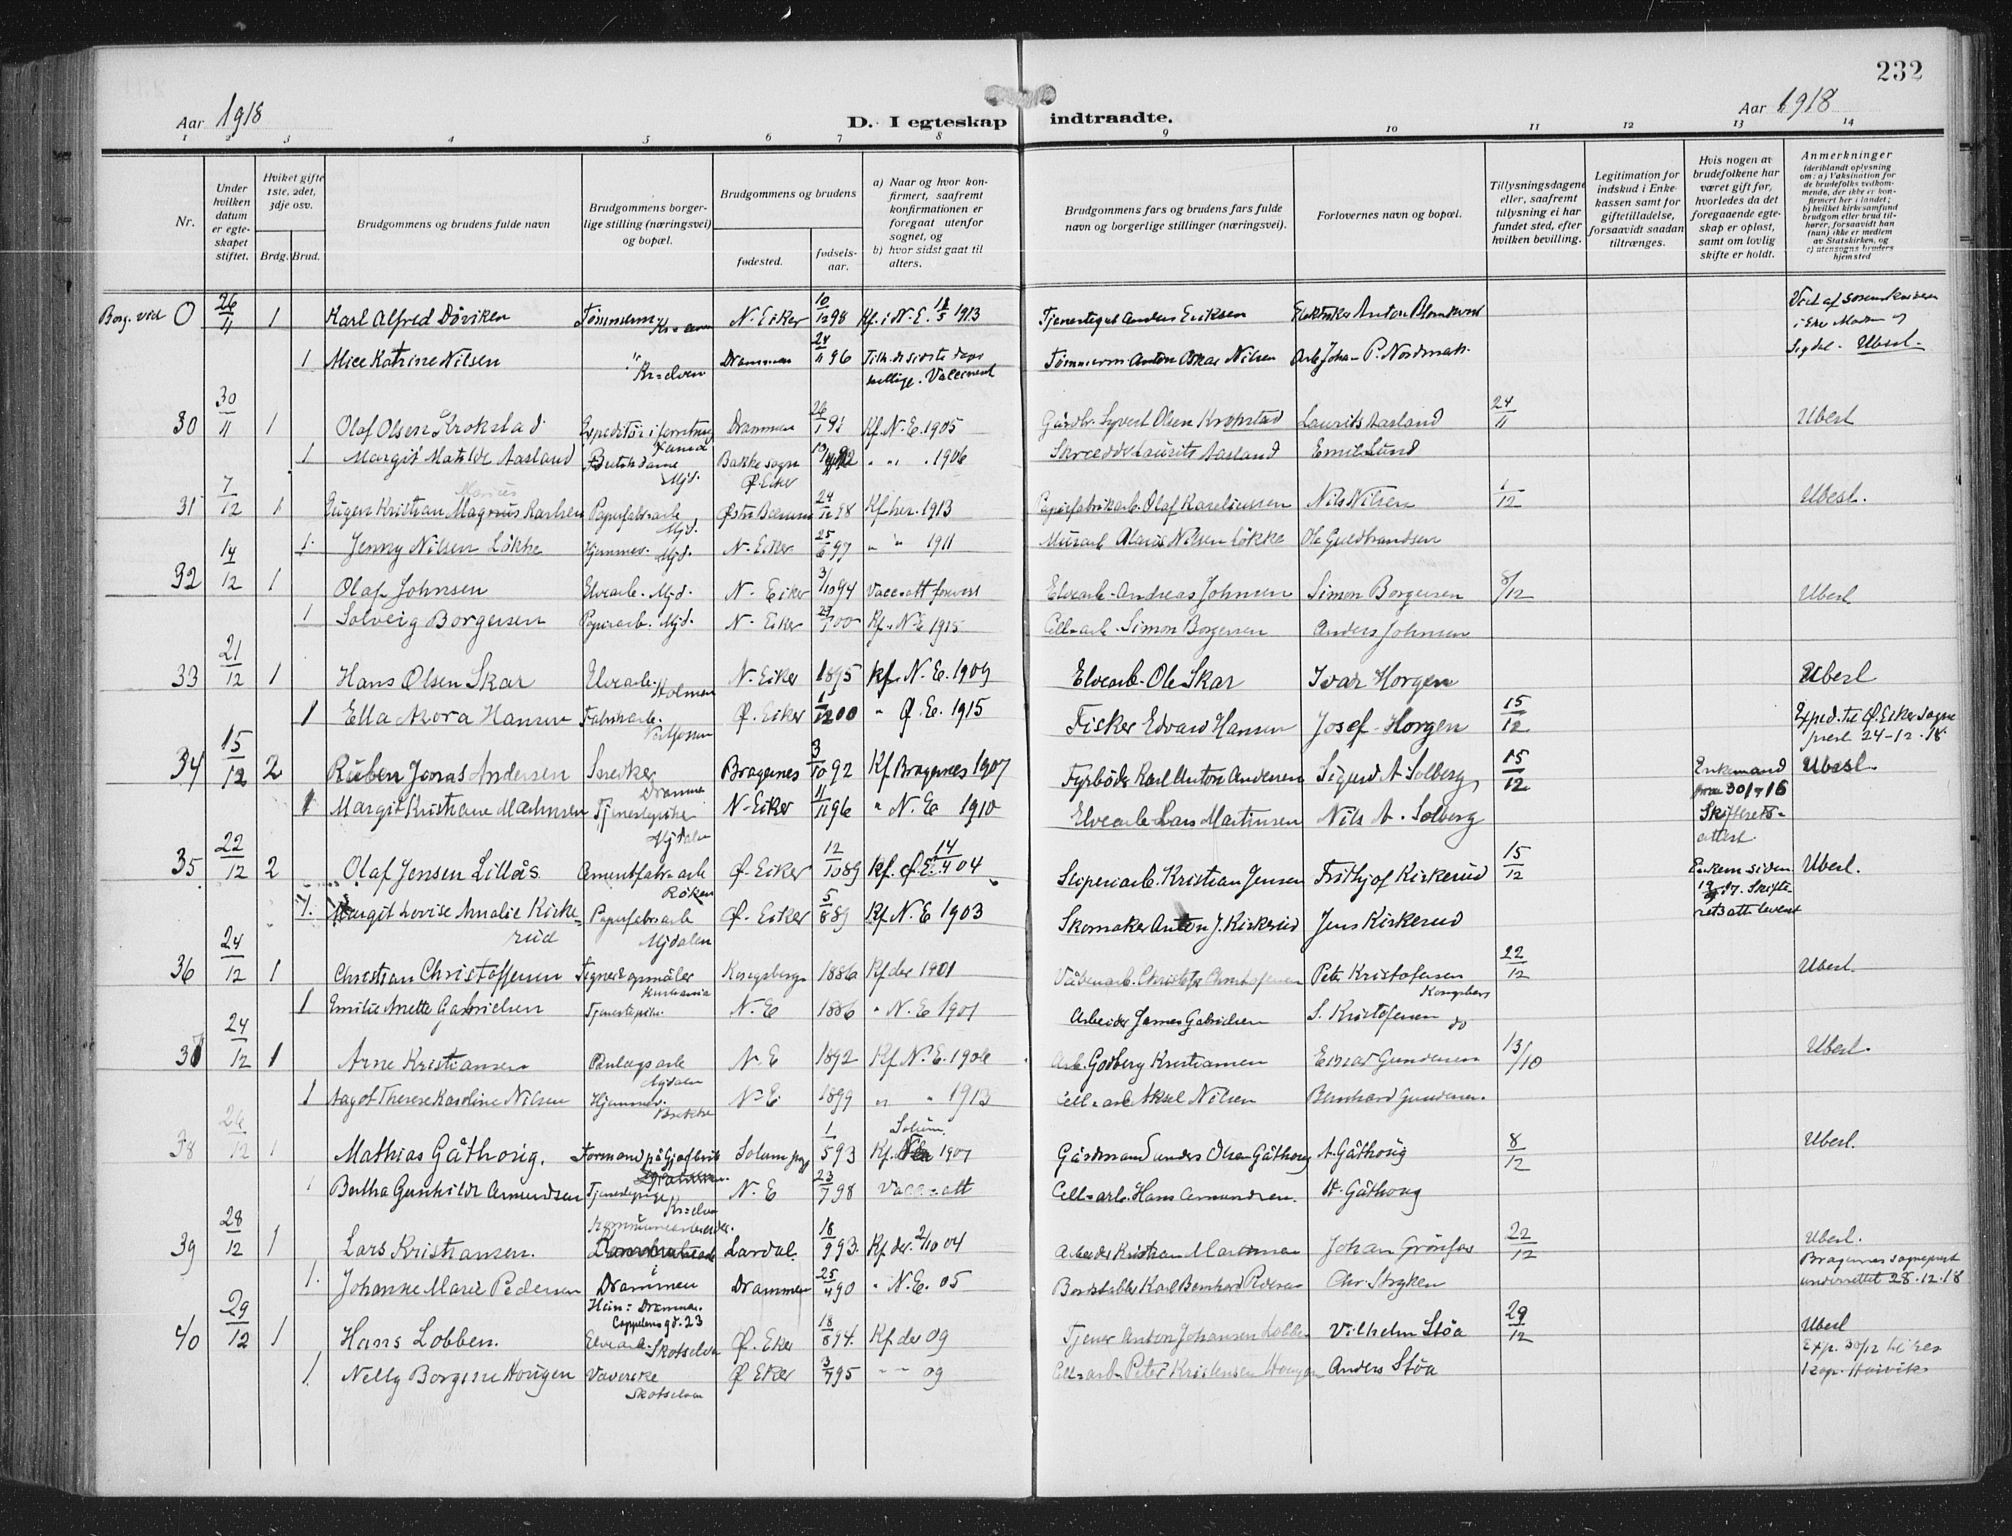 232
Aar 1918
D. I egteskap indtraadte.
Aar 1918
1 2 3 4 5 6 7 8 9 10 11 12 13 14
Nr.
Under hvilken datum er egteskapet stiftet.
Hviket gifte 1ste, 2det, 3dje osv.
Brdg. Brud.
Brudgommens og brudens fulde navn
Brudgommens borgerlige stilling (næringsvei) og bopæl.
Brudgommens og brudens
fødested.
fødselsaar.
a) Naar og hvor konfirmert, saafremt konfirmationen er foregaat utenfor sognet, og
b) hvor sidst gaat til alters.
Brudgommens fars og brudens fars fulde navn og borgerlige stillinger (næringsvei).
Forlovernes navn og bopæl.
Tillysningsdagene eller, saafremt tillysning ei har fundet sted, efter hvilken bevilling.
Legitimation for indskud i Enkekassen samt for giftetilladelse, forsaavidt saadan tiltrænges.
Hvis nogen av brudefolkene har været gift før, hvorledes da det foregaaende egteskap er opløst, samt om lovlig skifte er holdt.
Anmerkninger (deriblandt oplysning om: a) Vaksination for de brudefolks vedkommende, der ikke er konfirmert her i landet; b) hvilket kirkesamfund brudgom eller brud tilhører, forsaavidt han (hun) ikke er medlem av Statskirken, og c) utensogns bruders hjemsted
Borg. vied 0 26/11 1 Karl Alfred Døviken N. Eiker 10/12 98 Kf. i N. E. 1913 Anders Eriksen
1 Alice Katrine Nilsen Kr=elven Drammen 24/11 96 Tømmerm Anton Oskar Nilsen Arb Johan P. Nordmah
Sigdal. Ubesl.
30 30/11 1 Olaf Olsen Krokstad Drammen 26/1 91 Kf. N. E. 1905 Gårdbr. Syvert Olsen Krokstad Laurits Aasland 24/11 Ubesl
1 Margit Matilde Aasland Mjd. Bakke sogn Ø. Eiker 1906 Skrædder Laurits Aasland Emil Lund
31 7/12 1 Eugen Kristian Magnus Karlsen Marius Papirfabr=arb Mjd. 24/12 98 Kf her 1913 Nils Nilsen 1/12 Ubesl.
1. Jenny Nilsen Løkke Hjemmev. Mjd. N. Eiker 25/6 97 " " 1911 Murarb Nilsen Løkke Ole Guldbrandsen
32 14/12 1 Olaf Johnsen Elvearb. Mjd. N. Eiker 3/10 94 Vacc=att forevist Elvearb. Andreas Johnsen Simon Borgersen 8/12 Ubesl
1 Solveig Borgersen Papirarb. Mjd. N. Eiker 00 Kf. N. E 1915 Cell=arb. Simon Borgersen Anders Johnsen
33 21/12 1 Hans Olsen Skar Elvearb. Holmen N. Eiker 1895 kf. N. E. 1909 Elvearb. Ole Skar Ivar Horgen Ubesl
1 Ella Nora Hansen Fabrikarb. Vestfossen Ø. Eiker 1/12 00 " Ø. E. 1915 Fisker Edvard Hansen Josef Horgen 15/12 Exped. til Ø. Eiker sogneprest 24-12.18
34 15/12 2 Ruben Jonas Andersen Snedker Drammen Bragernes 3/10 92 Kf Bragernes 1907 Fyrbøder Karl Anton Andersen Sigurd A Solberg 15/12 Enkemand fra 30/7 16 Skifterets-attest Ubesl.
1 Margit Kristiane Martinsen Tjenestepike Mjdalen N-Eiker 11/11 96 " N. E 1910 Elvearb Lars Martinsen Nils A. Solberg
35 22/12 2 Olaf Jensen Lillås. Røken Ø. Eiker 12/10 89 Kf. Ø. E. 14/4 04 Sliperiarb. Kristian Jensen Frithjof Kirkerud 15/12 Enkem siden Skifteretsatt levert Ubesl.
1. Margit Lovise Amalie Kirkerud Papirfabrarb Mjdalen Ø. Eiker 5/8 89 Kf N. E 1903 Skomaker Anton J. Kirkerud Jens Kirkerud
36 24/12 1 Christian Christoffersen Kristiania Kongsberg 1886 Kf der 1901 Våbenarb. Christoffer Christoffersen Peter Kristofersen Kongsberg 22/12 Ubesl.
1 Emilie Anette Gabrielsen Tjenestepike. N. E 1886 " N. E 1901 Arbeider James Gabrielsen S. Kristofersen do
37 24/12 1 Arne Kristiansen Anlægsarb Mjdalen N. E 1892 Kf N. E. 1906 Arb. Godberg Kristiansen Einar Gundersen 13/10 Ubesl.
1 Aagot Therese Karoline Nilsen Hjemmev. N. E 1899 " " 1913 Cell=arb Aksel Nilsen Bernhard Gundersen.
38 26/12 1 Mathias Gåthoug. Formand på Solum 1/5 93 Kf. Solum 1907 Gårdmand Anders Olsen Gåthoug A. Gåthoug 8/12 Ubesl.
1 Bertha Gunhilde Amundsen Tjenestepige Kr=elven N. E 23/7 98 Vacc=att Cell=arb. Hans Amundsen. H. Gåthoug
39 28/12 1 Lars Kristiansen. Kommunearbeider. i Drammen Lardal. 18/9 93. Kf der. 2/10 04 Arbeider Kristian Johan Grønfos 22/12 Ubesl.
1. Johanne Marie Pedersen Hein: Drammen. Cappelens gd. 23 Drammen 25/4 90 " N. E. 05 Karl Bernhard Chr. Stryken Bragernes sogneprest underrettet 28.12.18
40 29/12 1 Hans Lobben. Elvearb. Skotselven Ø. Eker 18/8 94. Kf der 09 Tjener Anton Johansen Lobben Vilhelm Støa 29/12 Ubesl
1 Nelly Borgine Hougen Væverske Skotselven Ø Eker 3/7 95 " " 09 Cell=arb Peter Kristensen Hougen Anders Støa Exp. 30/12 til